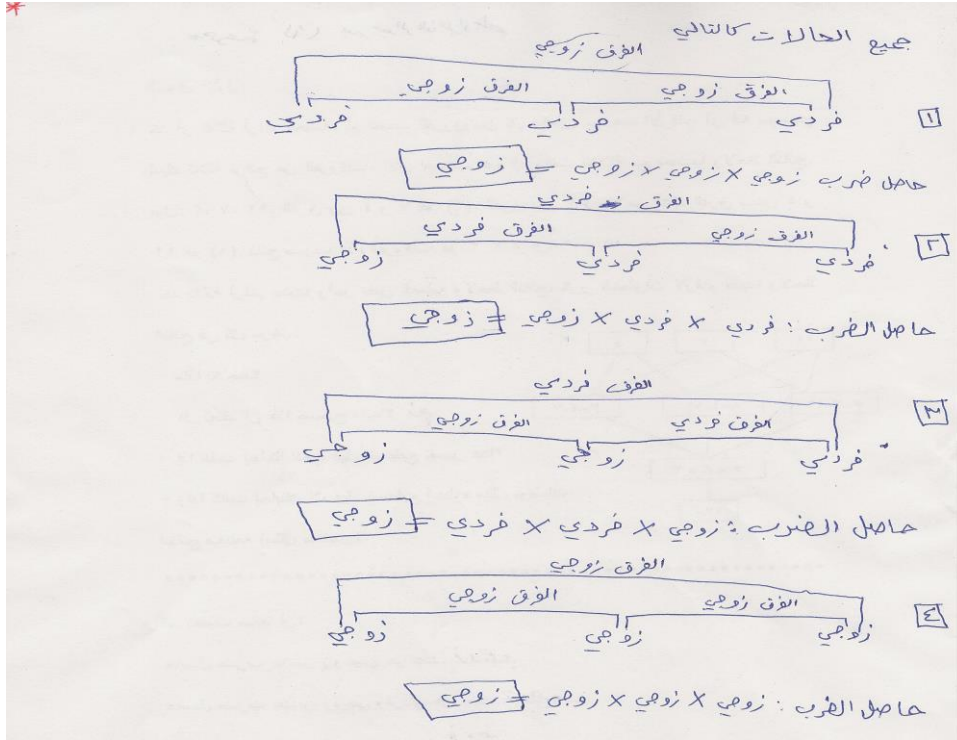 جميع الحالات كالتالي
الفرق زوجي
الفرق زوجي الفرق زوجي
١ فردي فردي فردي
حاصل ضرب زوجي × زوجي × زوجي = زوجي
الفرق فردي
الفرق زوجي الفرق فردي
٢ فردي فردي زوجي
حاصل الضرب : فردي × فردي × زوجي = زوجي
الفرق فردي
الفرق فردي الفرق زوجي
٣ فردي زوجي زوجي
حاصل الضرب : زوجي × فردي × فردي = زوجي
الفرق زوجي
الفرق زوجي الفرق زوجي
٤ زوجي زوجي زوجي
حاصل الضرب : زوجي × زوجي × زوجي = زوجي